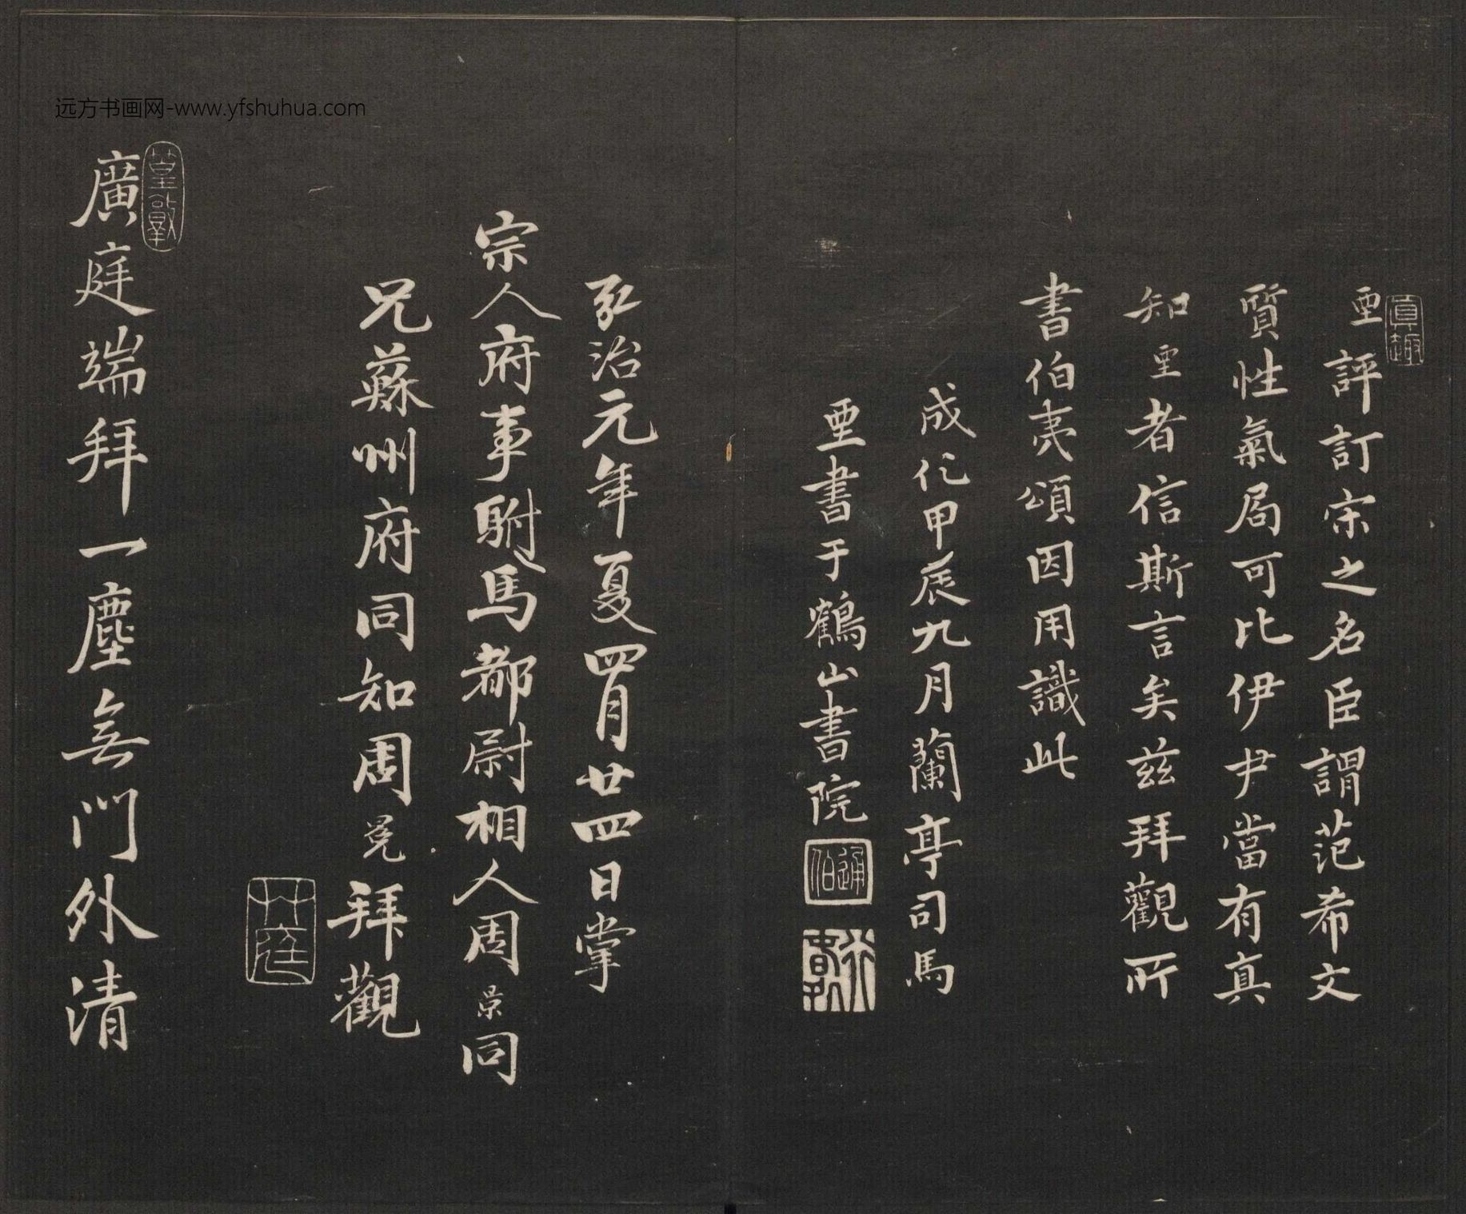 远方书画网-www.yfshuhua.com
真趣
垔評訂宋之名臣謂范希文
質性氣局可比伊尹當有真
知垔者信斯言矣兹拜觀所
書伯夷頌因用識此
成化甲辰九月蘭亭司馬
垔書于鶴山書院
通伯
弘治元年夏四月廿四日掌
宗人府事駙馬都尉相人周景同
兄蘇州府同知周冕拜觀
廣庭端拜一塵無門外清